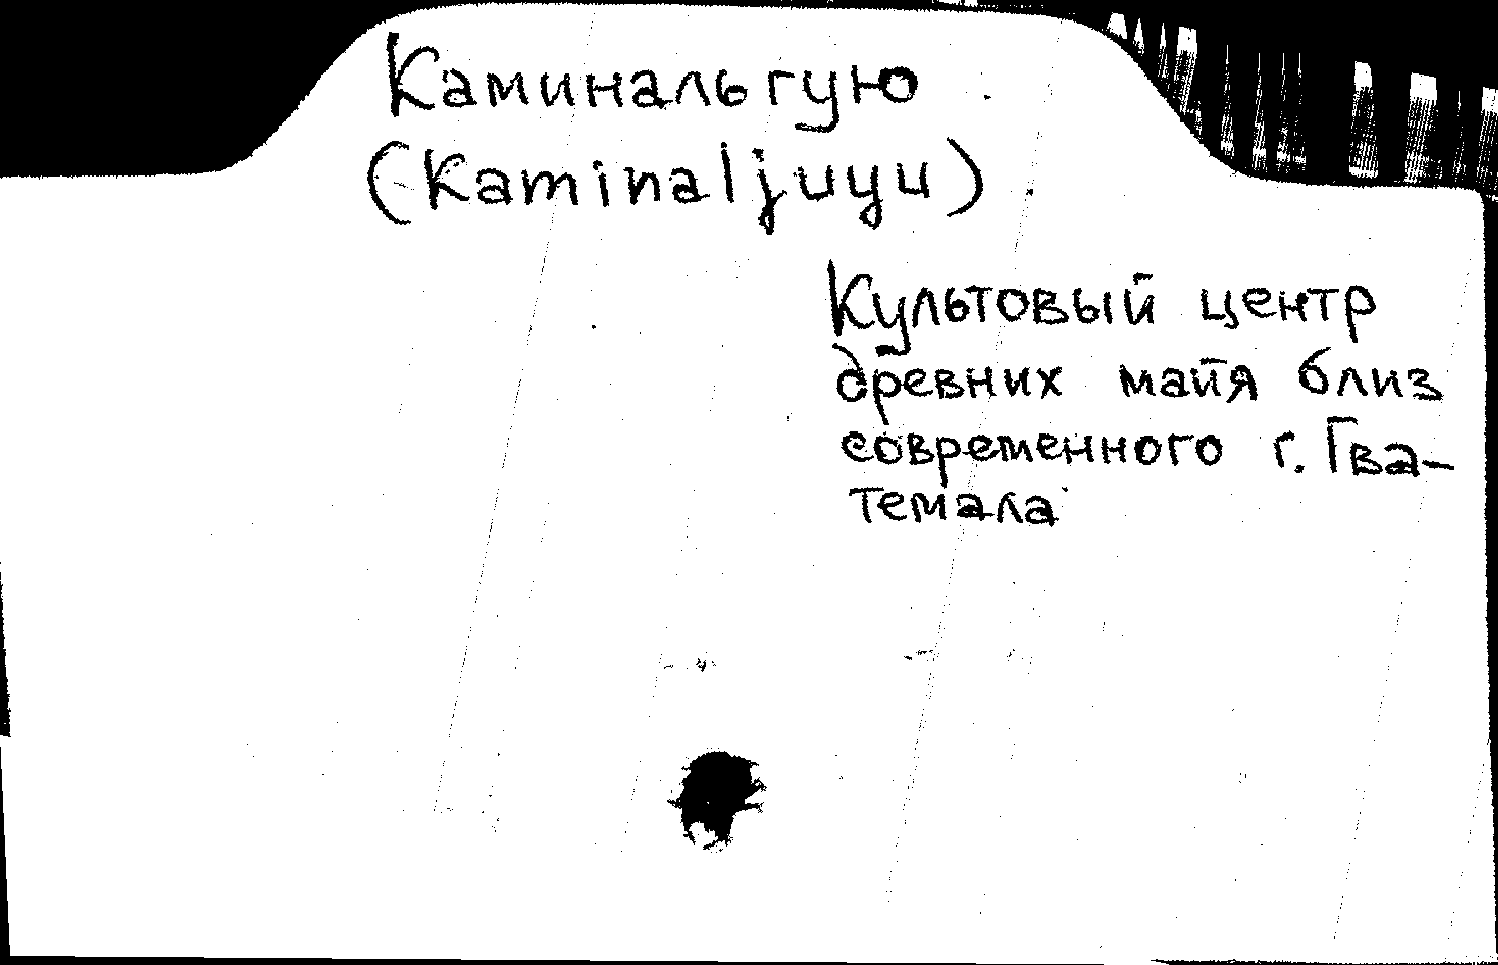 Каминальгую
(Kaminaljuyu)
Культовый центр
древних майя близ
современного г. Гва-
темала